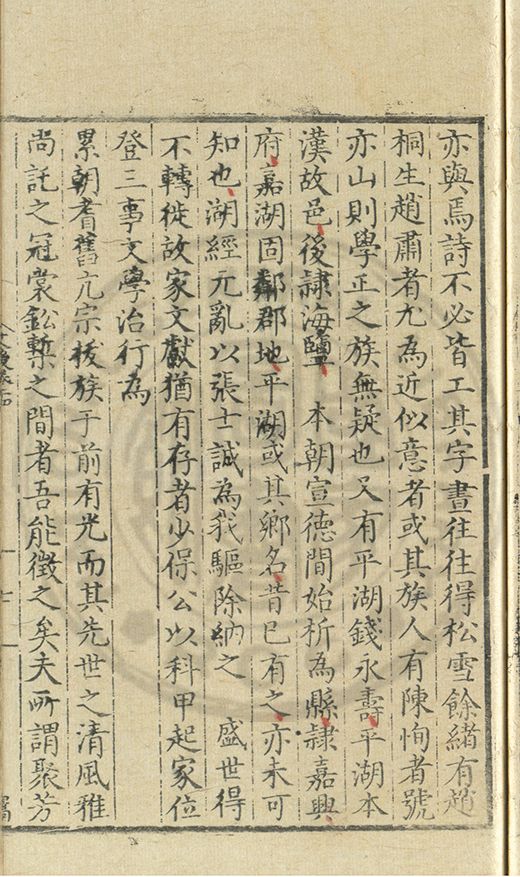 亦與焉詩不必皆工其字畫往往得松雪餘緒有趙
桐生趙肅者尤為近似意者或其族人有陳恂者號
亦山則學正之族無疑也又有平湖錢永壽平湖本
漢故邑後隷海鹽　本朝宣德間始析為縣隷嘉興
府嘉湖固鄰郡地平湖或其鄉名昔已有之亦未可
知也湖經元亂以張士誠為我驅除納之　盛世得
不轉徙故家文獻猶有存者少得公以科甲起家位
登三事文學治行為
累朝耆舊亢宗棱族于前有光而其先世之清風雅
尚託之冠裳鈆槧之間者吾能徵之矣夫所謂聚芳